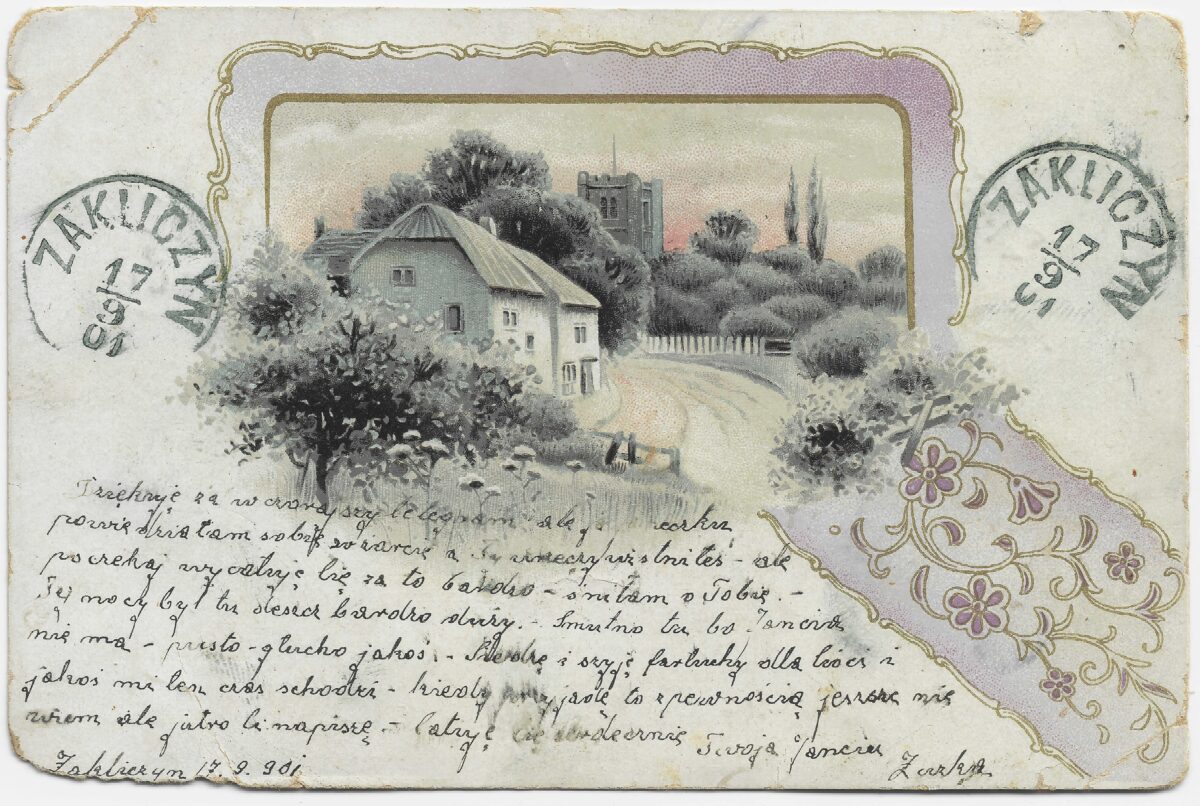 ZAKLICZYN
17/9
01
ZAKLICZYN
17/9
01
Dziękuję za wczorajszy telegram ale
powiedziałam sobie żarcie a Ty urzeczywistniłeś - ale
poczekaj wycałuję Cię za to bardzo - śniłam o Tobie. -
Tej nocy był tu deszcz bardzo duży. - Smutno tu bo Jancia
nie ma - pusto - głucho jakoś. - Siedzę i szyję fartuchy dla i
jakoś mi ten czas schodzi - kiedy przyjadę to z pewnością jeszcze nie
wiem ale jutro Ci napiszę - Całuję Cię serdecznie Twoja Janciu
Zakliczyn 17.9.901 Zuzka